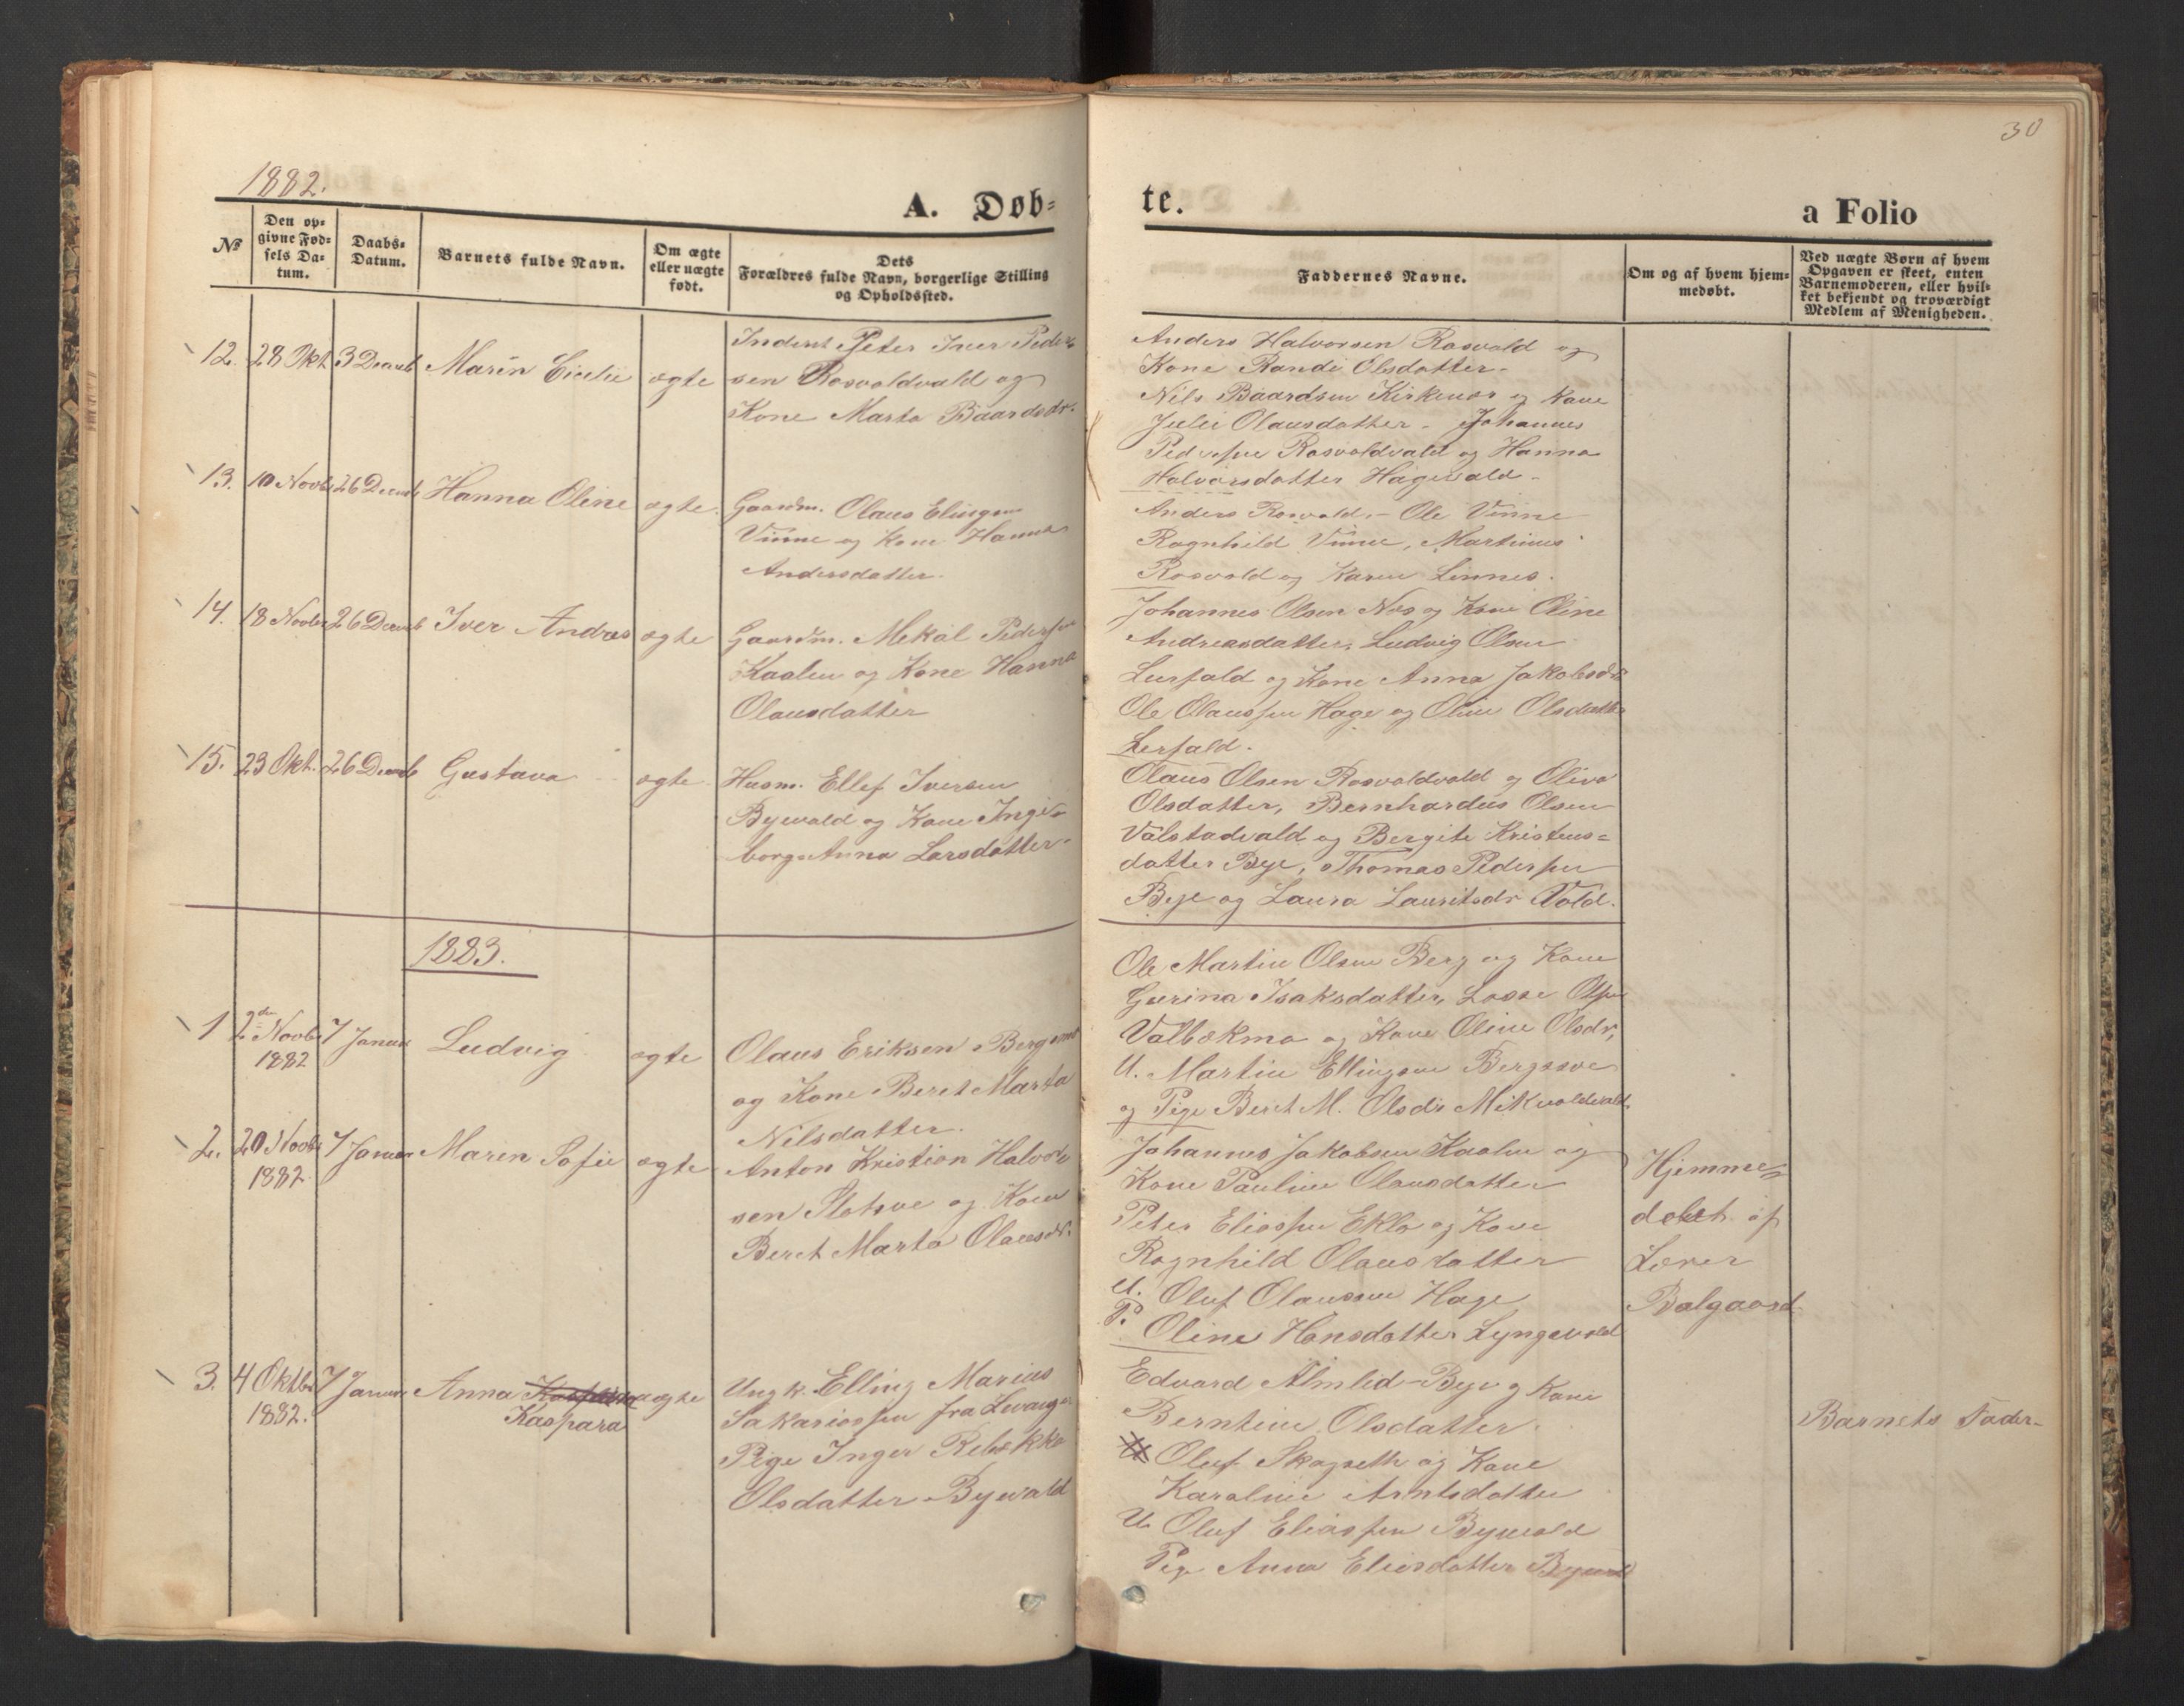 1882.
A. Døb=
№
Den op=
givne Fød=
sels Da=
tum.
Daabs=
Datum.
Barnets fulde Navn.
Om ægte
eller uægte
født.
Dets
Forældres fulde Navn, borgerlige Stilling
og Opholdssted.
12. 28 Okt 3 Decmb Maren Cicelie ægte
Inderst Peter Iver Peder
sen Rosvoldvald og
Kone Marta Baardsdr.
13. 10 Novbr 26 Decmb Hanna Oline ægte.
Gaardm. Olaus Elingsen
Vinne og Kone Hanna
Andersdatter.
14. 18 Novbr 26 Decmb Iver Andras ægte
Gaardm. Mekal Pedersen
Kaalen og Kone Hanna
Olausdatter
15. 23 Okt. 26 Decmb Gustava ægte.
Husm. Ellef Iversen
Byevald og Kone Inge-
borg Anna Larsdatter.
1883.
1 2den Novbr 1882 7 Januar Ludvig ægte
Olaus Eriksen
og Kone Beret Marta
Nilsdatter.
2. 20 Novbr 1882. 7 Januar Maren Sofie ægte
Anton Kristian Halvor
sen og Kone
Beret Marta Olausdr.
3. 4 Oktbr 1882. 7 Januar Anna Kaspara uægte
Ungk. Elling Marius
Sakariassen fra Levanger
Pige Inger Rebekka
Olsdatter Byevald
30
te.
a Folio
Faddernes Navne.
Om og af hvem hjem=
medøbt.
Ved uægte Børn af hvem
Opgaven er skeet, enten
Barnemoderen, eller hvil=
ket bekjendt og troværdigt
Medlem af Menigheden.
Anders Halvorsen Rosvold og
Kone Randi Olsdatter.
Nils Baardsen Kirkenes og Kone
Julie Olausdatter - Johannes
Pedersen Rosvoldvald og Hanna
Halvorsdatter Hagevald -
Anders Rosvold. - Ole Vinne
Ragnhild Vinne, Martinus
Rosvold og Karen Linnes.
Johannes Olsen Næs og Kone Oline
Andreasdatter, Ludvig Olsen
Lerfald og Kone Anna Jakobsdr
Ole Olaussen Hage og Oline Olsdatter
Lerfald.
Olaus Olsen Rosvoldvald og Oliva
Olsdatter, Bernhardus Olsen
Valstadvald og Bergite Kristens=
datter Bye, Thomas Pedersen
Bye og Laura Lauritsdr Vold.
Ole Martin Olsen Berg og Kone
Gurina Isaksdatter, Lasse Olsen
Valbekmo og Kone Oline Olsdr,
U. Martin Ellingsen Bergsve
og Pige Beret M. Olsdr Mikvoldvald
Johannes Jakobsen Kaalen og
Kone Pauline Olausdatter
Peter Eliassen Eklo og Kone
Ragnhild Olausdatter
U. Oluf Olaussen Hage
P. Oline Hansdatter Lyngsvald
Hjemme=
døbt af
Lærer
Balgaard
Edvard Almlid Bye og Kone
Berntine Olsdatter.
Oluf Skagseth og Kone
Karoline Arntsdatter
U. Oluf Eliassen Byevald
Pige Anna Eliasdatter Byevald
Barnets Fader